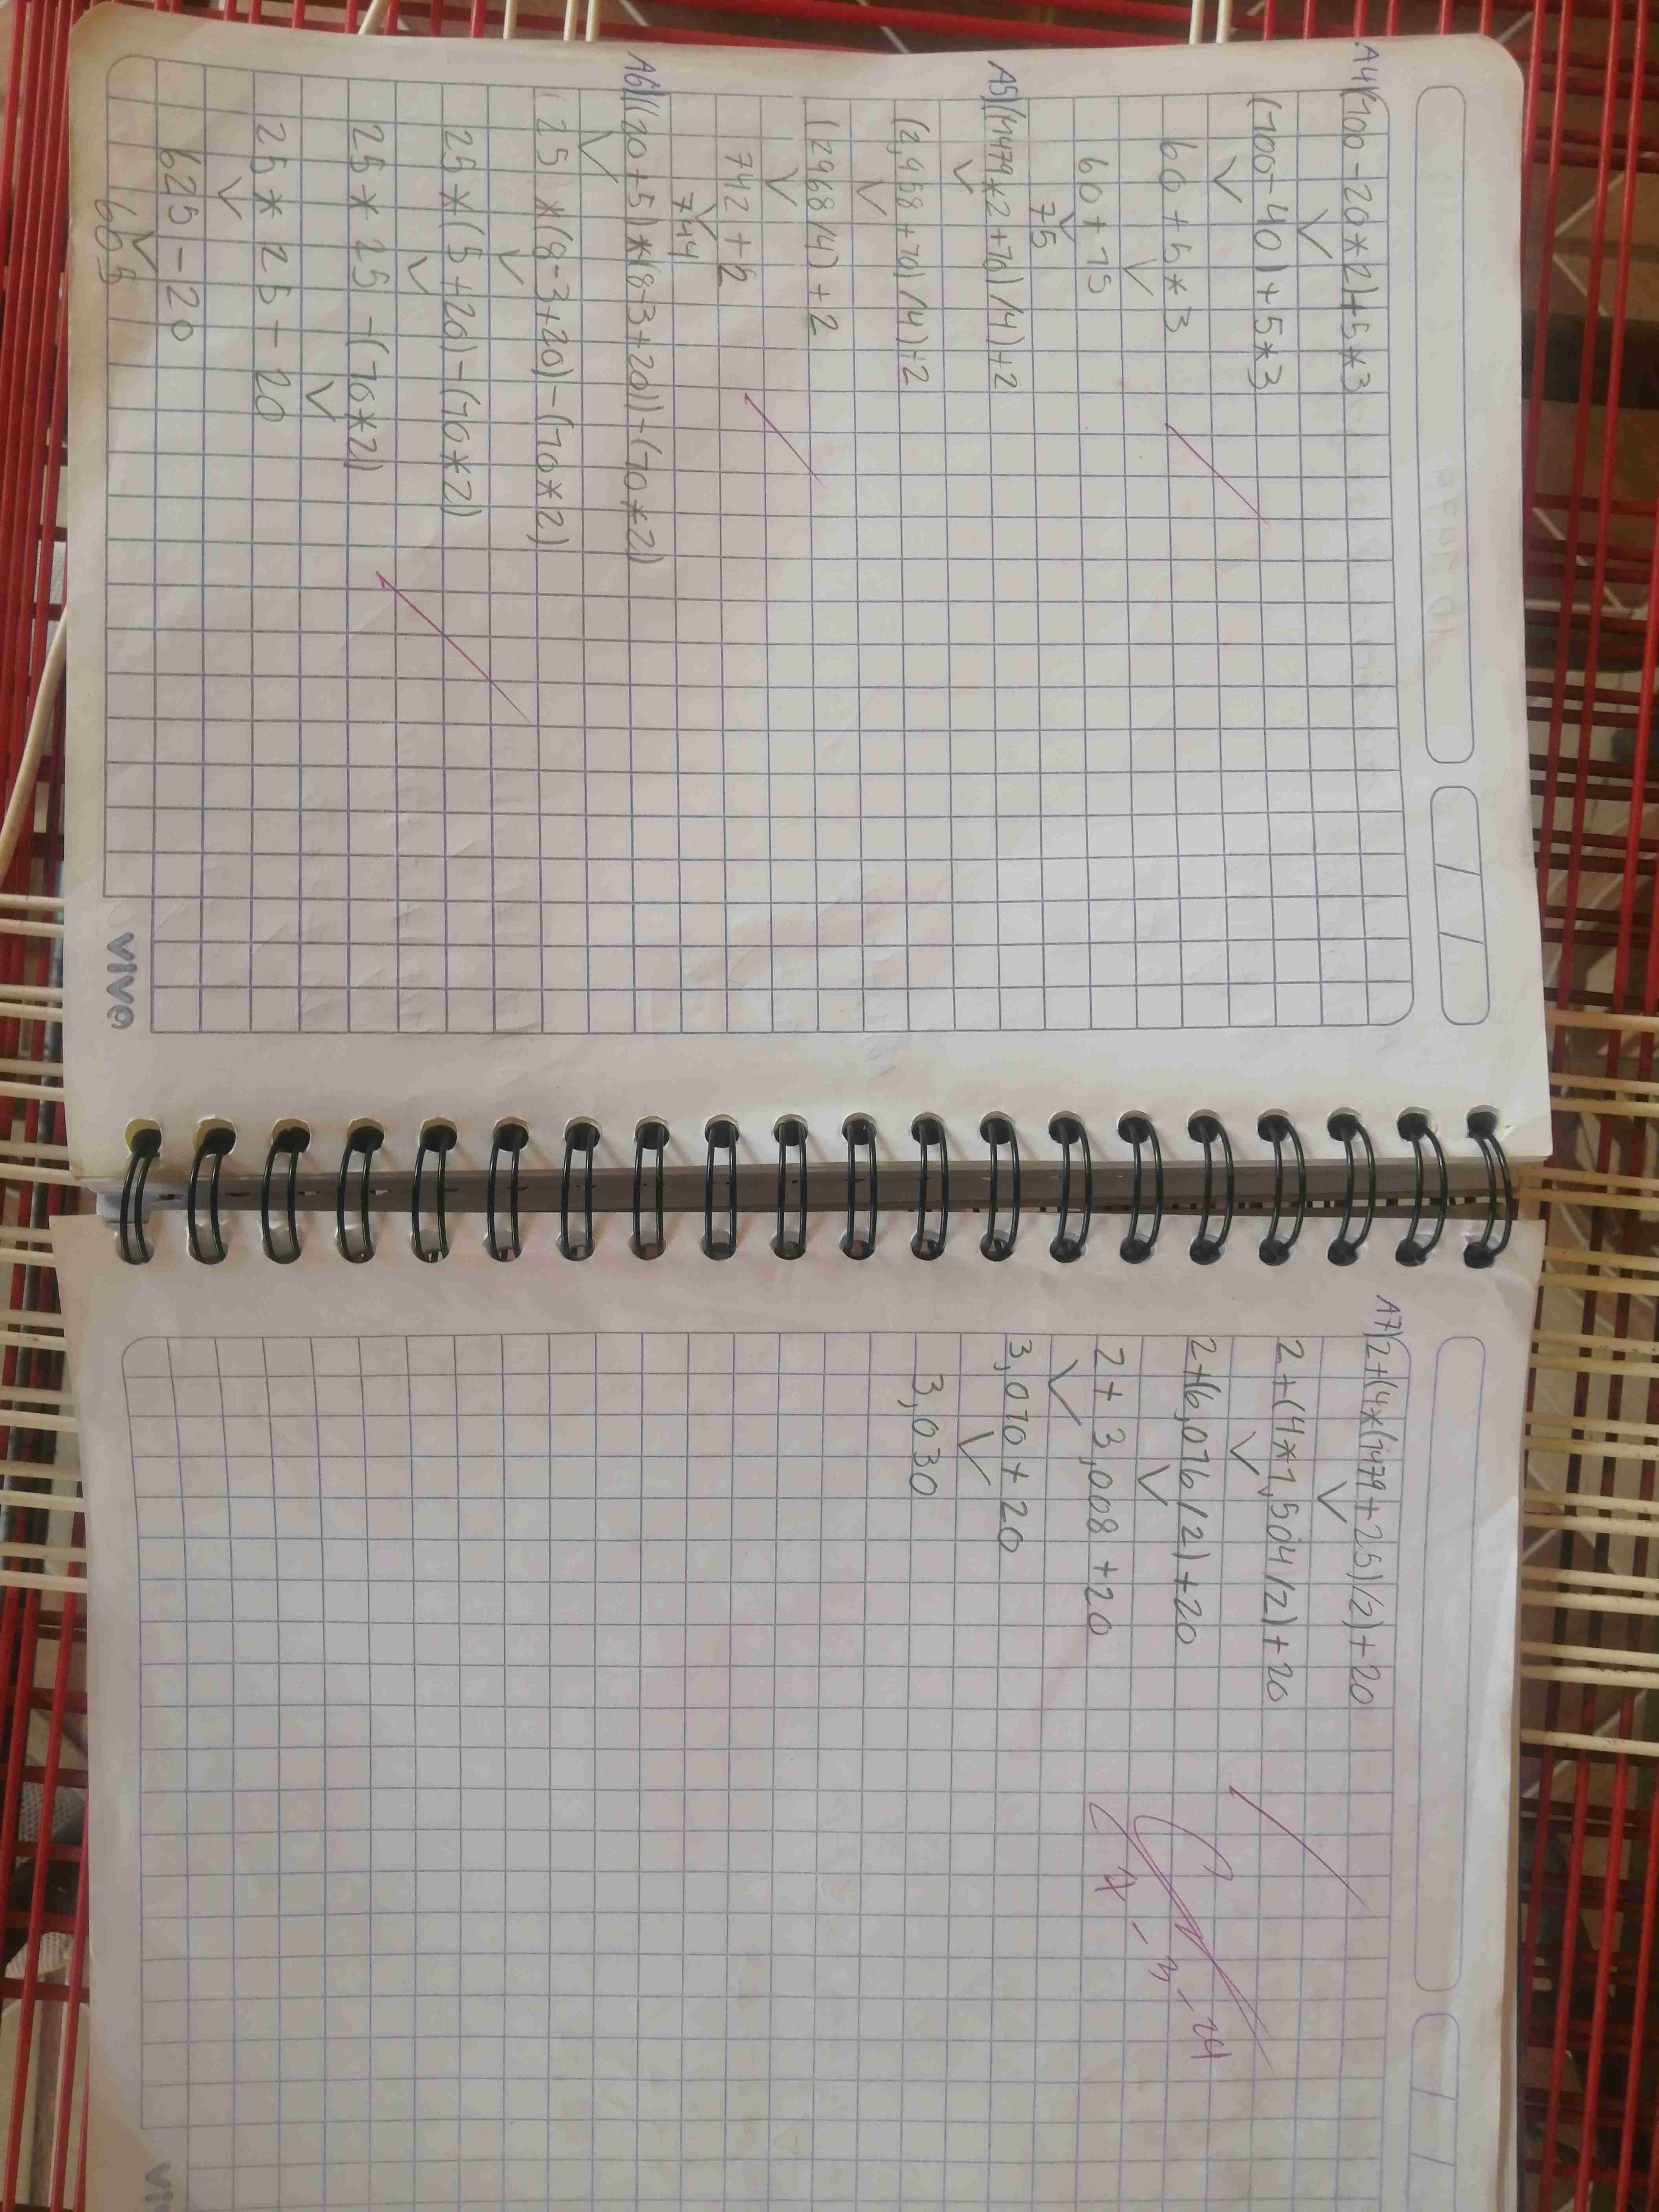 A4)(100-20*2)+5*3
(100-40)+5*3
60+5*3
60+15
75
A5)((1479*2+10)/4)+2
(2,958+10)/4)+2
(2968/4)+2
742+2
744
A6)((20+5)*(8-3+20))-(10*2)
(25)*(8-3+20)-(10*2)
25*(5+20)-(10*2)
25*25-(10*2)
25*25-20
625-20
605
vive
A7)2+(4*(1479+25)/2)+20
2+(4*1,504/2)+20
2+(6,016/2)+20
2+3,008+20
3,010+20
3,030